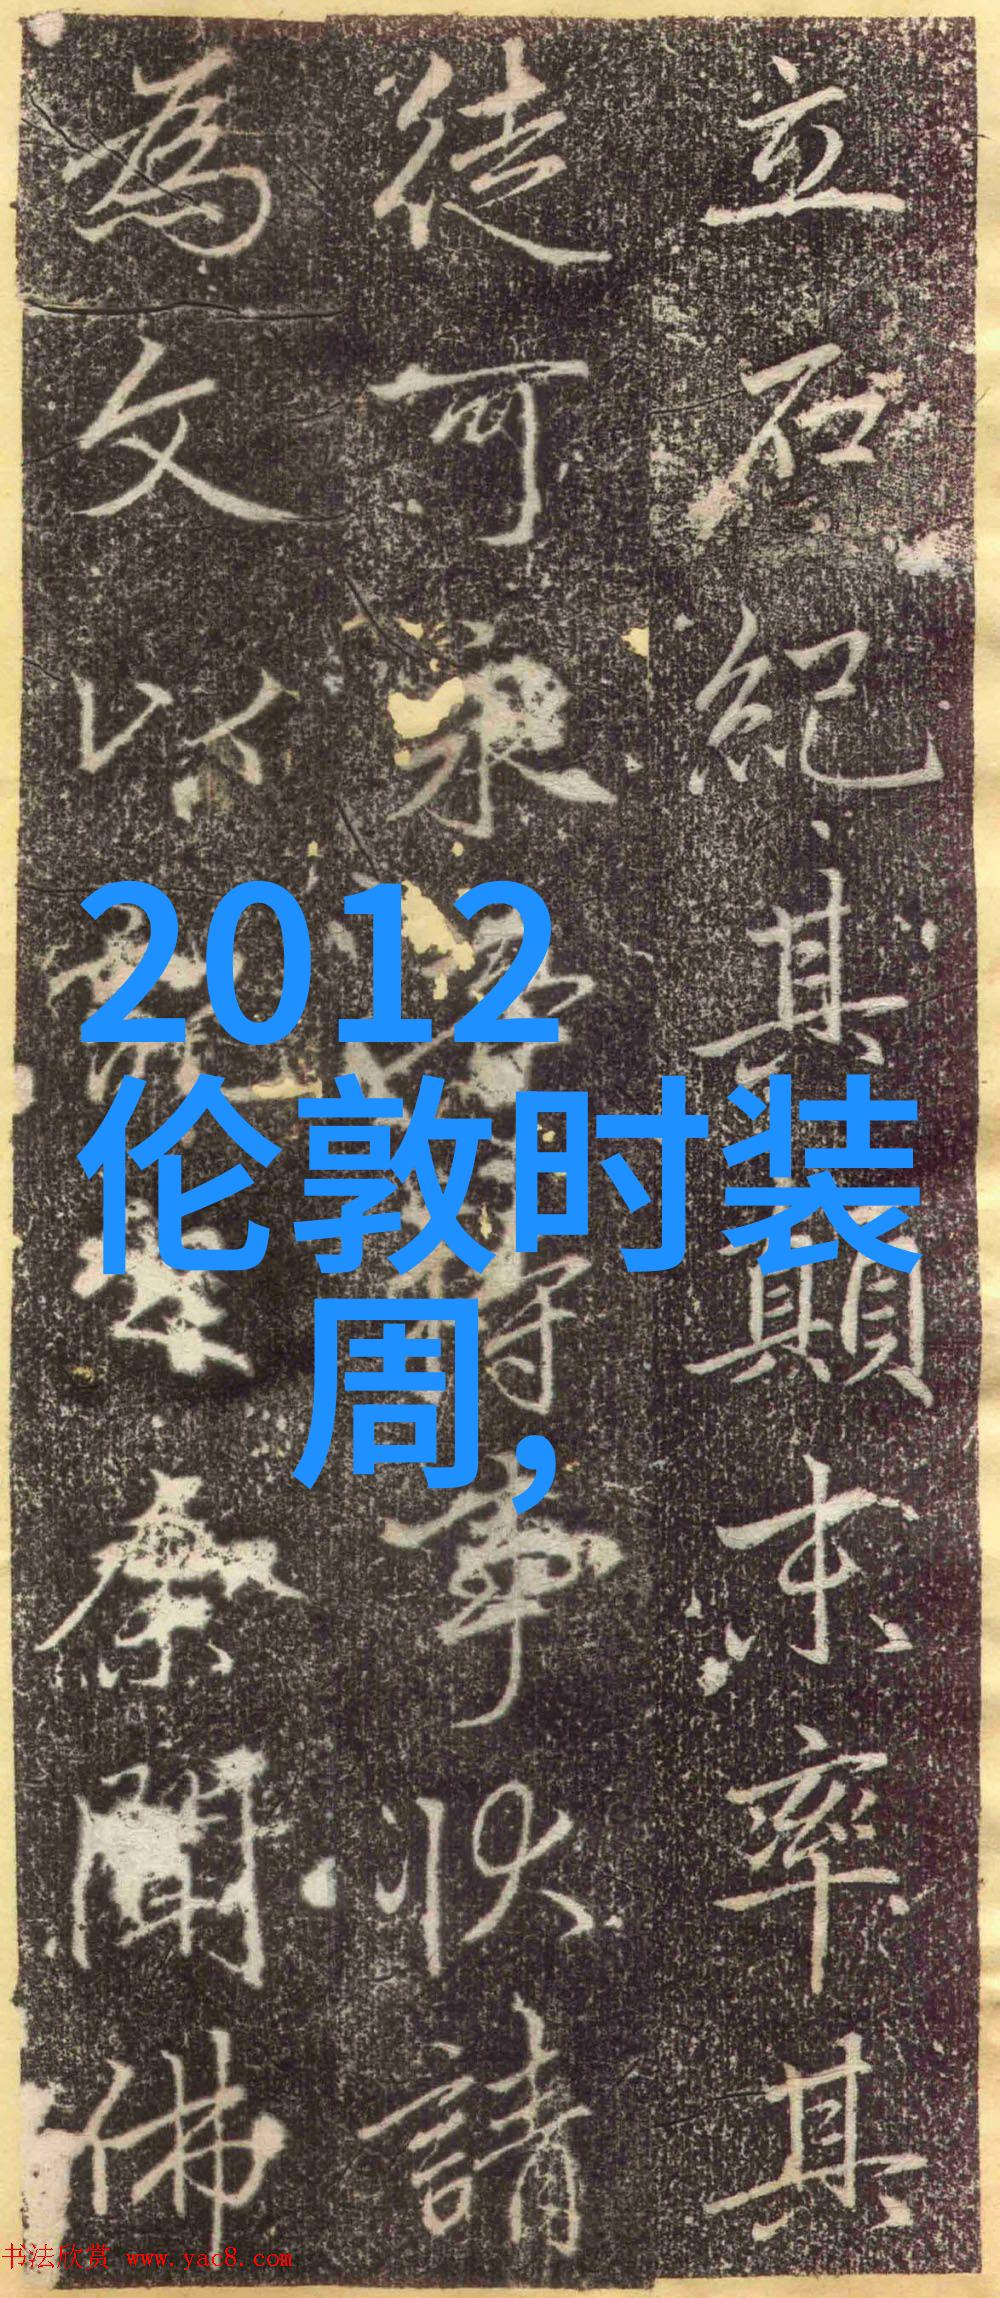 立石紀其顛末率其
徒可事狀請
為文以余聞佛
2012
伦敦时装
周,
书法欣赏 www.yac8.com